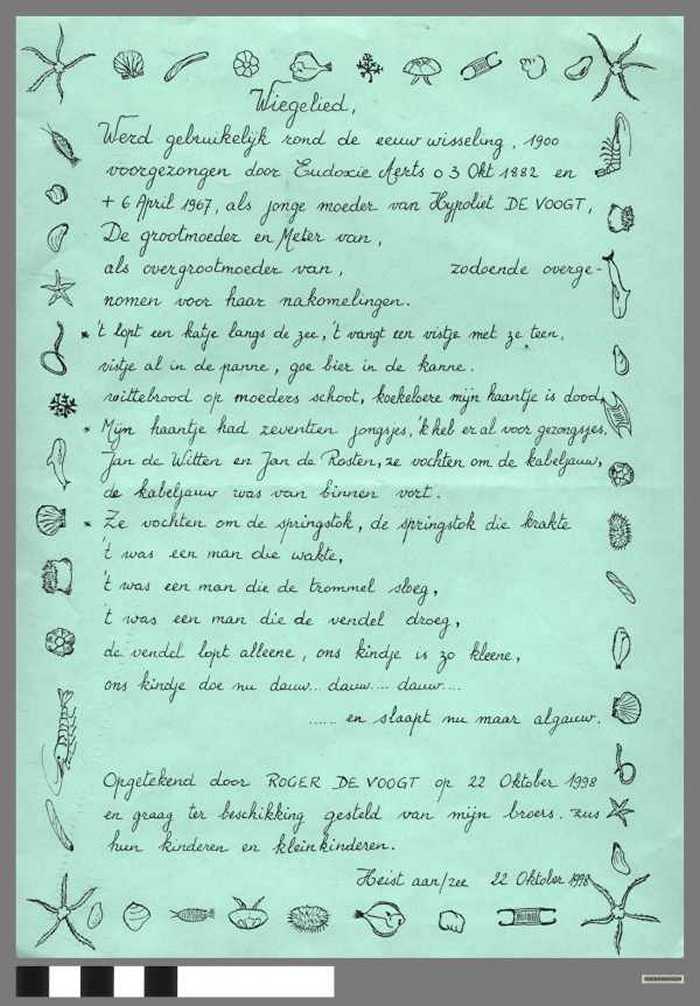 Wiegelied,
Werd gebruikelijk rond de eeuwwisseling, 1900
voorgezongen door Eudoxie Aerts o 3 Okt 1882 en
+ 6 April 1967, als jonge moeder van Hypoliet DE VOOGT,
De grootmoeder en Meter van,
als overgrootmoeder van, zodoende overge-
nomen voor haar nakomelingen.
* 't lopt een katje langs de zee, 't vangt een vistje met ze teen,
vistje al in de panne, goe bier in de kanne.
wittebrood op moeders schoot, koekeloere mijn haantje is dood,
* Mijn haantje had zeventien jongsjes, 'k heb er al voor gezongsjes,
Jan de Witten en Jan de Rosten, ze vochten om de kabeljauw,
de kabeljauw was van binnen vort.
* Ze vochten om de springstok, de springstok die krakte
't was een man die wakte,
't was een man die de trommel sloeg,
't was een man die de vendel droeg,
de vendel lopt alleene, ons kindje is zo kleene,
ons kindje doe nu dauw... dauw.... dauw....
...... en slaapt nu maar algauw.
Opgetekend door ROGER DE VOOGT op 22 Oktober 1998
en graag ter beschikking gesteld van mijn broers. zus
hun kinderen en kleinkinderen.
Heist aan/zee 22 Oktober 1998